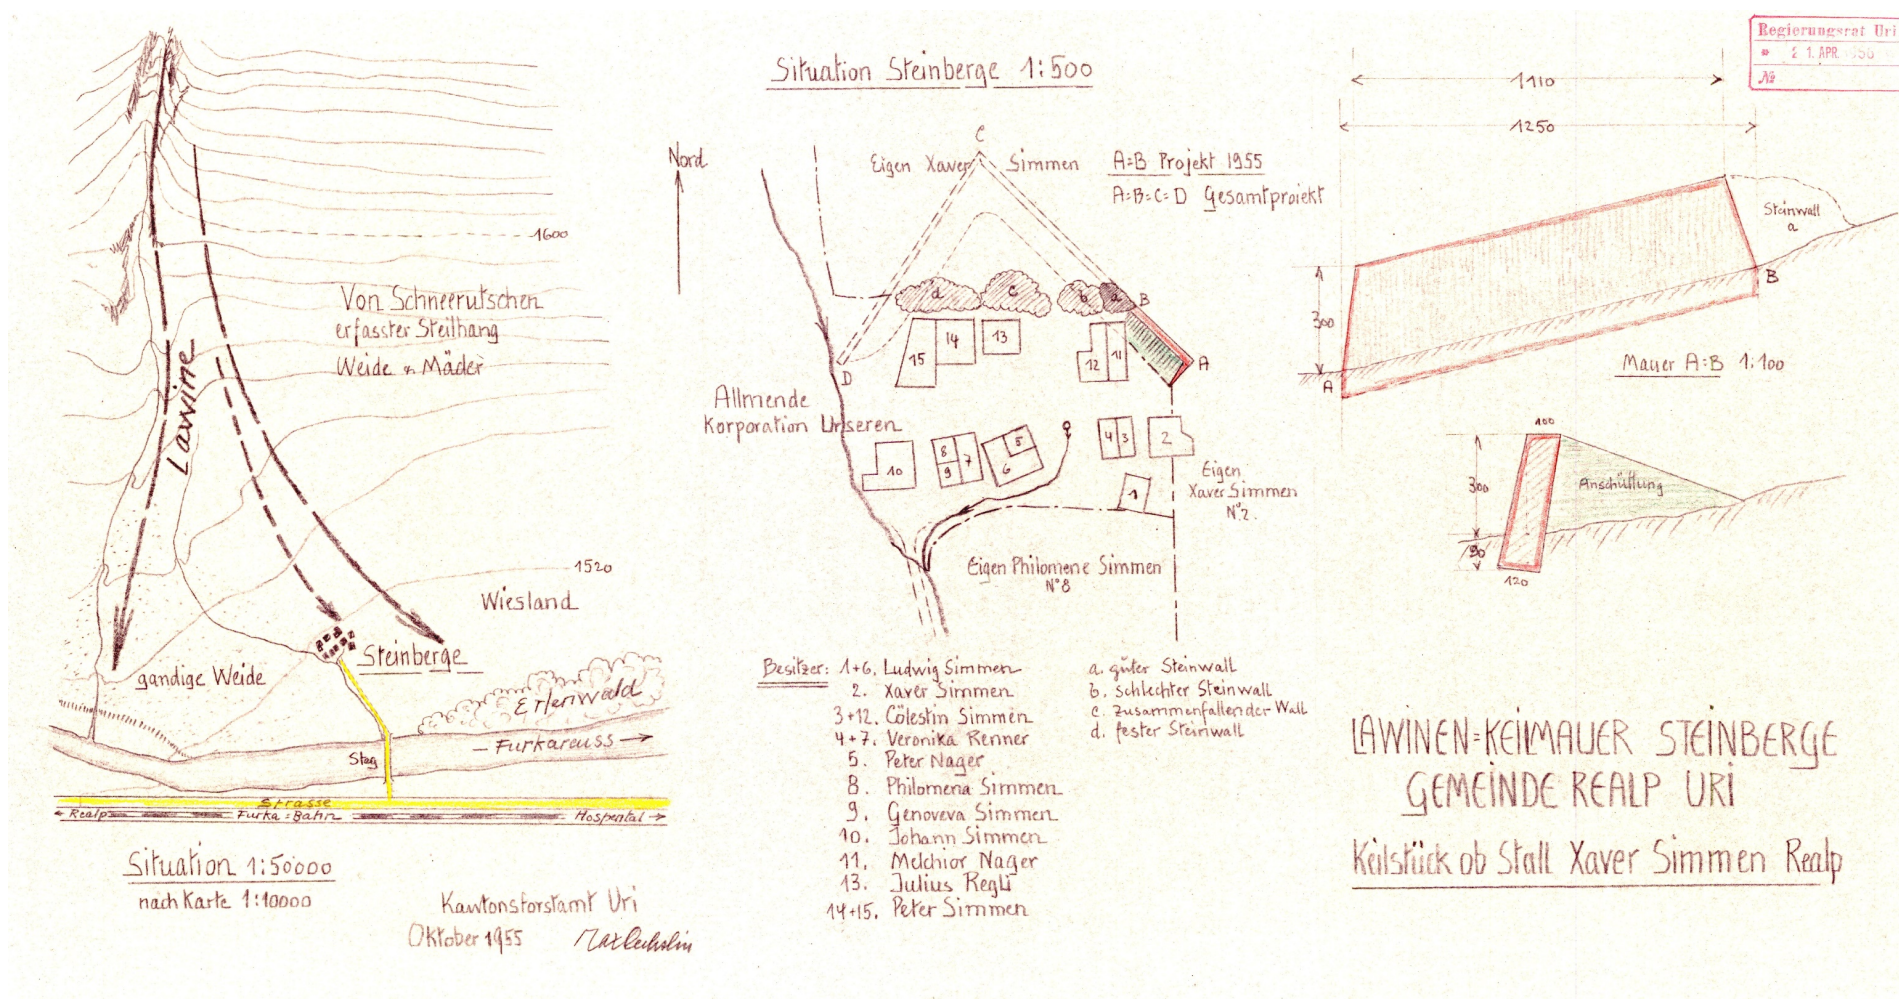 1600
Von Schneerutschen
erfasster Steilhang
Weide & Mäder
Lawine
1520
Wiesland
Steinberge
gandige Weide
Erlenwald
Furkareuss
Steg
Strasse
Realp Furka=Bahn Hospental
Situation 1:50000
nach Karte 1:10000
Kantonsforstamt Uri
Oktober 1955
Situation Steinberge 1:500
Nord
C
Eigen Xaver Simmen
A=B Projekt 1955
A=B=C=D Gesamtprojekt
d c b a B
15 14 13 12 11
A
D
Allmende
Korporation Urseren
10 8 9 7 5 6 4 3 2
1
Eigen
Xaver Simmen
N°2.
Eigen Philomene Simmen
N°8
Besitzer: 1+6. Ludwig Simmen
2. Xaver Simmen
3+12. Cölestin Simmen
4+7. Veronika Renner
5. Peter Nager
8. Philomena Simmen
9. Genoveva Simmen
10. Johann Simmen
11. Melchior Nager
13. Julius Regli
14+15. Peter Simmen
a. guter Steinwall
b. schlechter Steinwall
c. zusammenfallender Wall
d. fester Steinwall
Regierungsrat Uri
21. APR. 1956
№
1110
1250
Steinwall
a
B
300
A
Mauer A=B 1:100
100
300
Anschüttung
90
120
LAWINEN=KEILMAUER STEINBERGE
GEMEINDE REALP URI
Keilstück ob Stall Xaver Simmen Realp